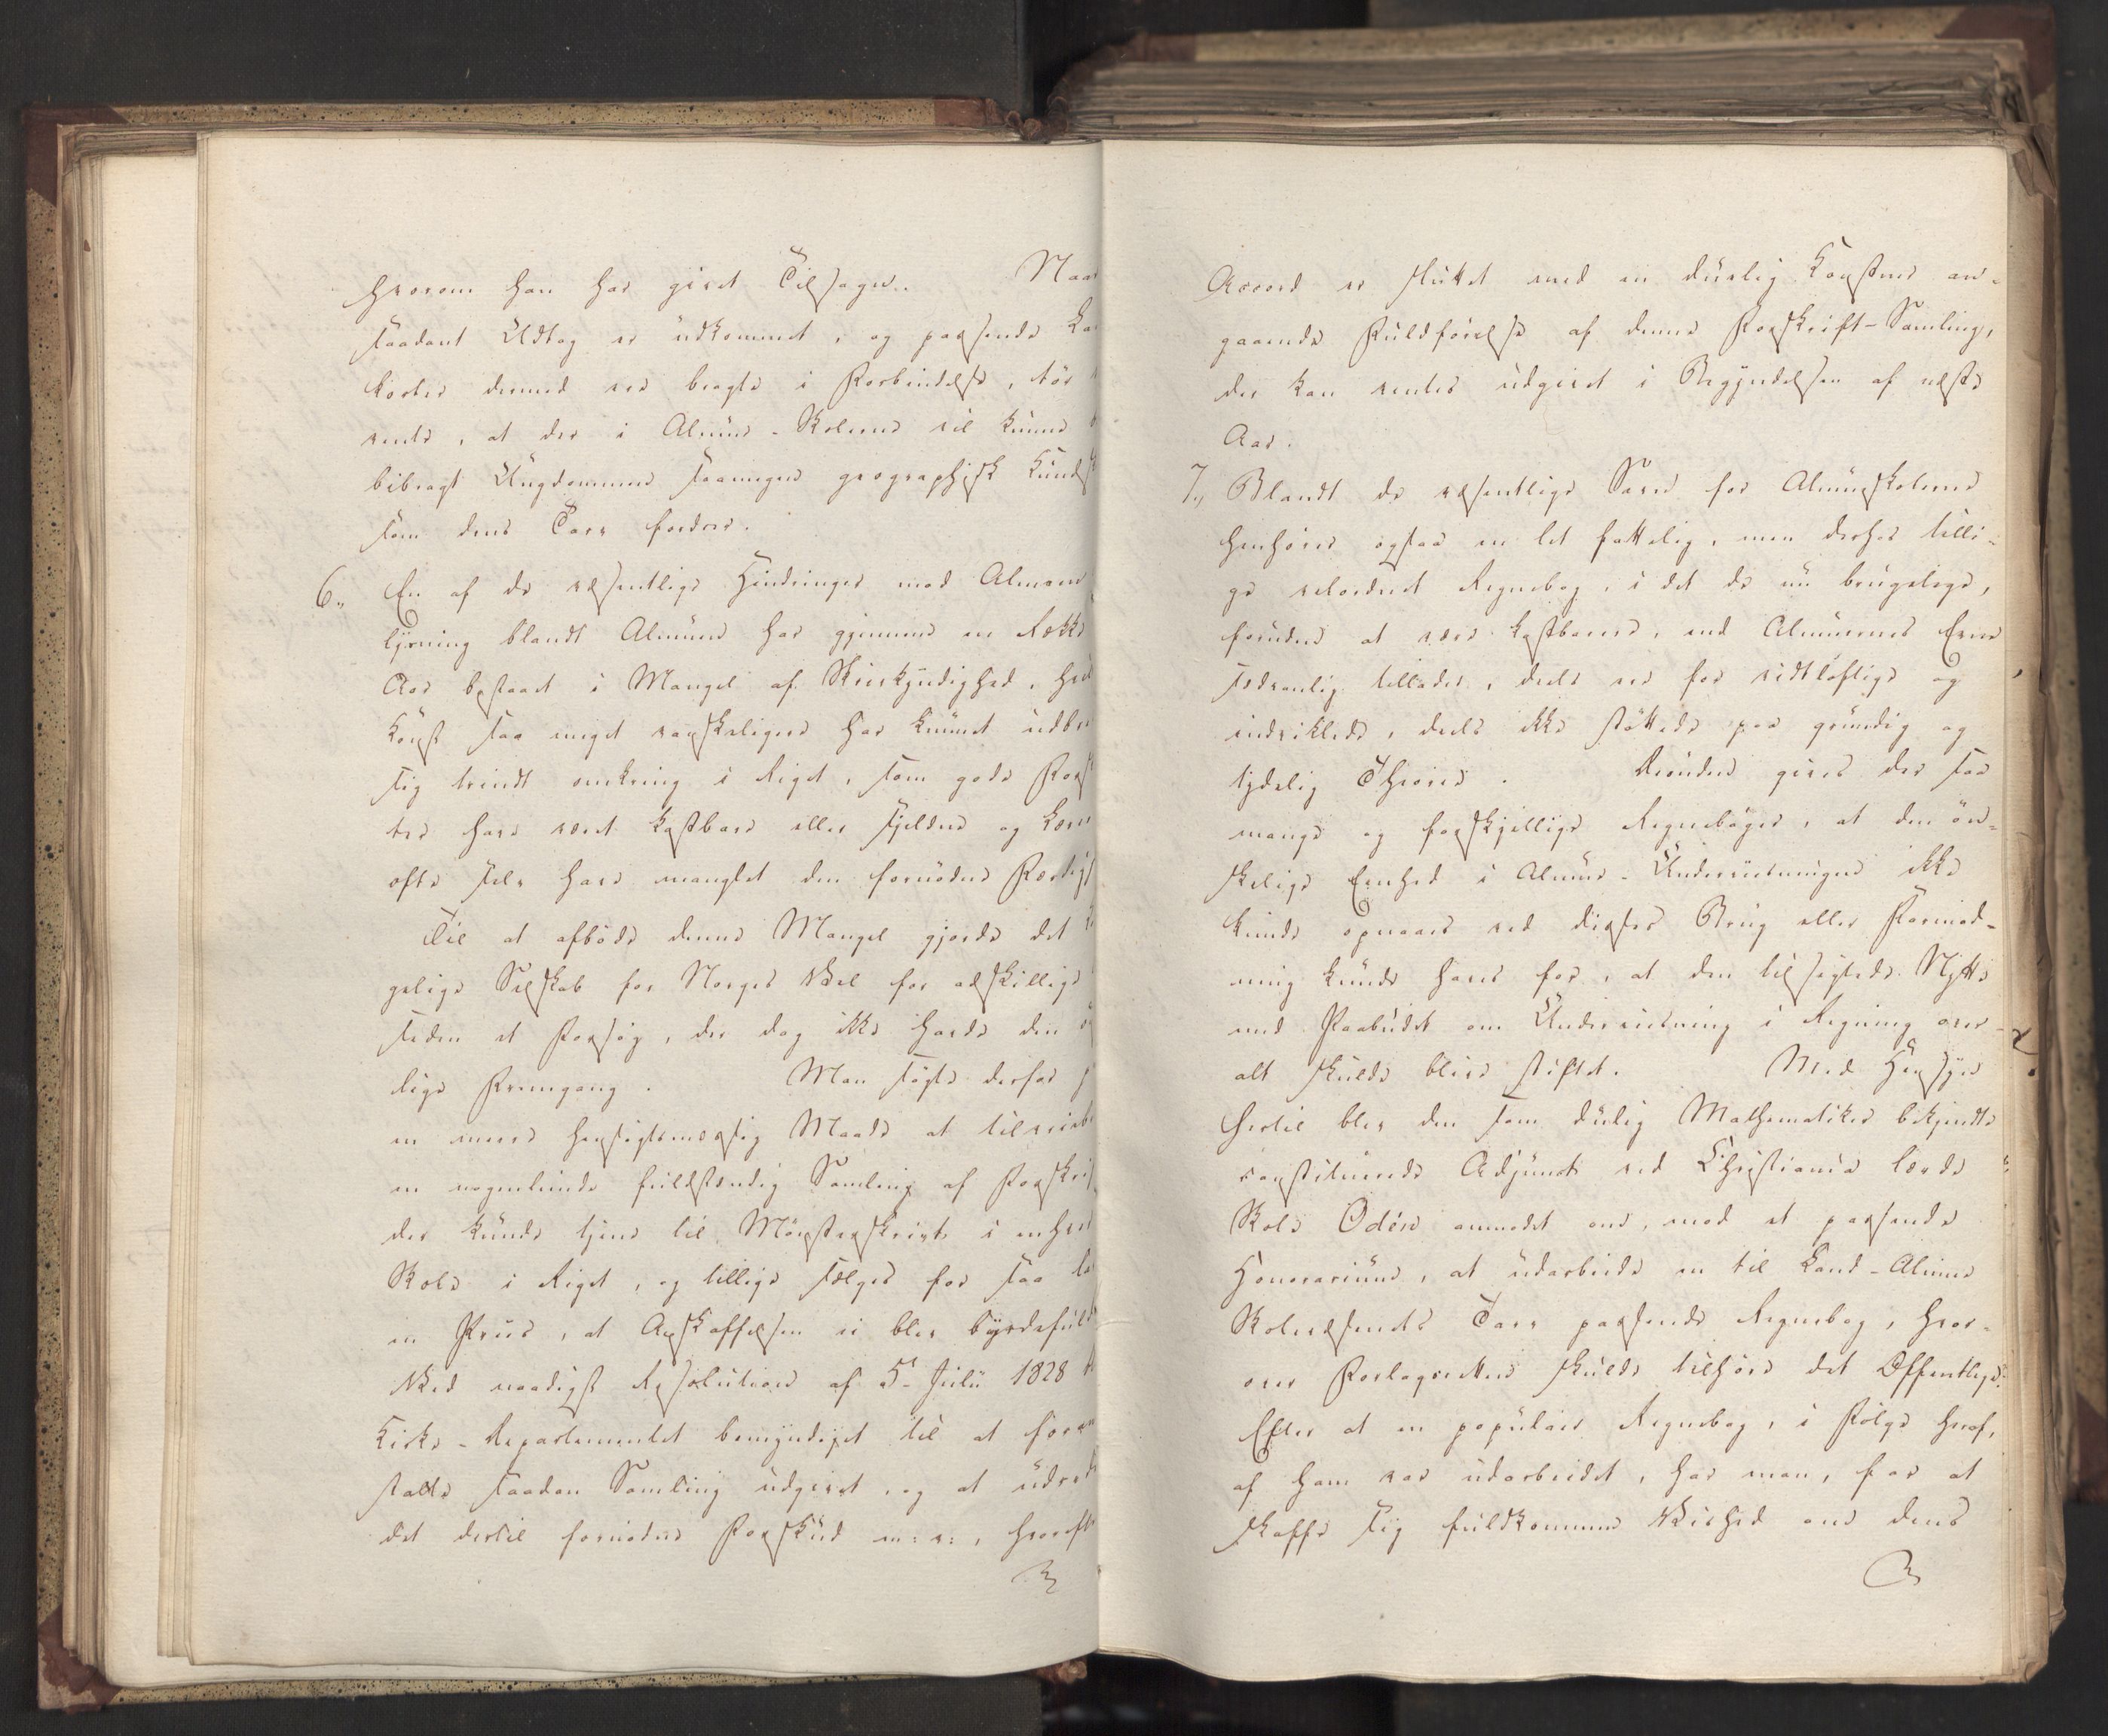 hvorom han har givet Tilsagn. Naar
saadant Udtog er udkommet, og passende Land
korter dermed ere bragte i Forbindelse, tör
ventes, at der i Almue-Skolerne vil kunne
bibragt Ungdommen saamegen geographisk Kundsk
som dens Tarv fordrer.
6., En af de væsentlige Hindringer mod Almeen
lysning blandt Almuen har gjennem en Række
Aar bestaaet i Mangel af Skrivkyndighed, hvil
Konst saa meget vanskeligere har kunnet udbre
sig trindt omkring i Riget, som gode Forskr
ter have været kostbare eller sjeldne og Lærer
ofte selv have manglet den fornödne Færdigh
Til at afböde denne Mangel gjorde det
gelige Selskab for Norges Vel for adskillige
siden et Forsög, der dog ikke havde den ön
lige Fremgang. Man sögte derfor
en mere hensigtsmæssig Maade at tilveiebr
en nogenlunde fuldstændig Samling af Forskrif
der kunde tjene til Mönsterskrivt i enhver
Skole i Riget, og tillige sælges for saa la
en Priis, at Anskaffelsen ei blev byrdefuld
Ved naadigst Resolution af 5te Julii 1828 bl
Kirke-Departementet bemyndiget til at foran
stalte saadan Samling udgivet, og at udrede
det dertil fornödne Forskud m: v:, hvorefter
Accord er sluttet med en duelig Konstner an-
gaaende Fuldförelse af denne Forskrift-Samling,
der kan ventes udgivet i Begyndelsen af næste
Aar.
7., Blandt de væsentlige Savn for Almueskolerne
henhörer ogsaa en let fattelig, men derhos tilli-
ge velordnet Regnebog, i det de nu brugelige,
foruden at være kostbarere, end Almuernes Evne
sædvanlig tillader, deels ere for vidtlöftige og
indviklede, deels ikke stöttede paa grundig og
tydelig Theorie. Desuden gives der saa
mange og forskjellige Regneböger, at den ön-
skelige Eenhed i Almue-Underviisningen ikke
kunde opnaaes ved disses Brug eller Formod-
ning kunde haves for, at den tilsigtede Nytte
med Paabudet om Underviisning i Regning over-
alt skulde blive stiftet. Med Hensyn
hertil blev den som duelig Mathematiker bekjendte
constituerede Adjunct ved Christiania lærde
Skole Odén anmodet om, mod et passende
Honorarium, at udarbeide en til Land-Almue
Skolevæsenets Tarv passende Regnebog, hvor-
over Forlagsretten skulde tilhöre det Offentlige.
Efter at en populair Regnebog, i Fölge heraf,
af ham var udarbeidet, har man, for at
skaffe sig fuldkommen Vished om dens